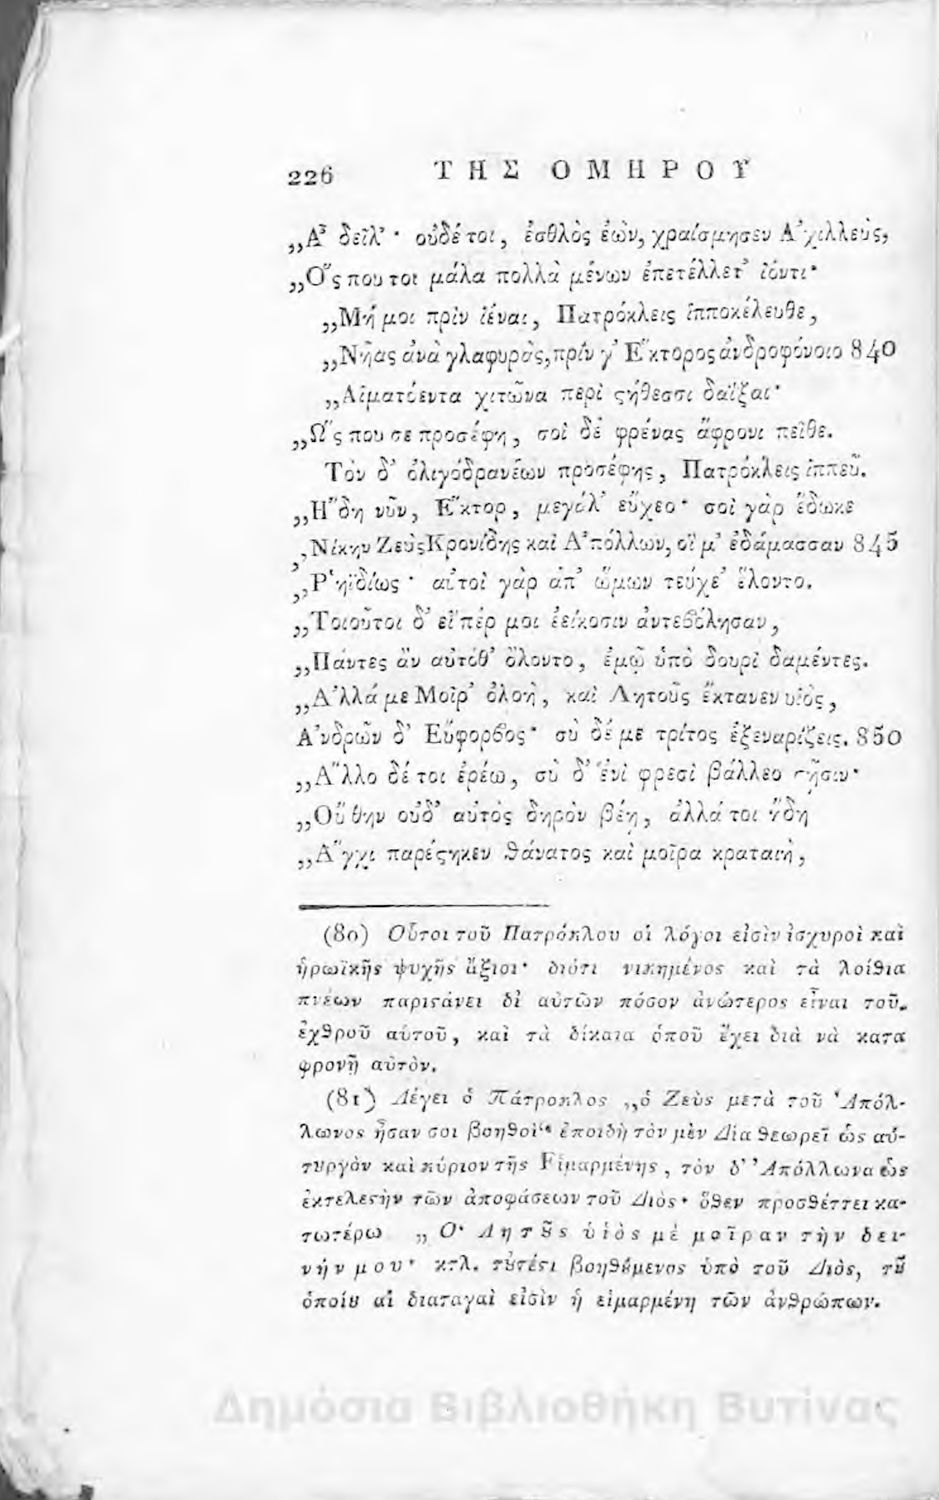 226 ΤΗΣ ΟΜΗΡΟΥ
„Α῏ δεῖλ᾿· οὐδέ τοι, ἐσθλὸς ἐὼν, χραίσμησεν Α᾿χιλλεὺς,
„Ο῞ς που τοι μάλα πολλὰ μένων ἐπετέλλετ᾿ ἰόντι·
„Μή μοι πρὶν ἰέναι, Πατρόκλεις ἱπποκέλευθε,
„Νῆας ἀνὰ γλαφυρὰς, πρίν γ᾿ Ε῞κτορος ἀνδροφόνοιο 840
„Αἱματόεντα χιτῶνα περὶ ϛήθεσσι δαΐξαι·
„Ω῞ς που σε προσέφη, σοὶ δὲ φρένας ἄφρονι πεῖθε.
Τὸν δ᾿ ὀλιγοδρανέων προσέφης, Πατρόκλεις ἱππεῦ.
„Η῎δη νῦν, Ε῞κτορ, μεγάλ᾿ εὔχεο· σοὶ γὰρ ἔδωκε
„Νίκην Ζεὺς Κρονίδης καὶ Α᾿πόλλων, οἵ μ᾿ ἐδάμασσαν 845
„Ρ῾ηϊδίως· αὐτοὶ γὰρ ἀπ᾿ ὤμων τεύχε᾿ ἕλοντο.
„Τοιοῦτοι δ᾿ εἴπέρ μοι ἐείκοσιν ἀντεϐόλησαν,
„Πάντες ἂν αὐτόθ᾿ ὄλοντο, ἐμῷ ὑπὸ δουρὶ δαμέντες.
„Α᾿λλά με Μοῖρ᾿ ὀλοὴ, καὶ Λητοῦς ἔκτανεν υἱὸς,
Α᾿νδρῶν δ᾿ Εὔφορϐος· σὺ δέ με τρίτος ἐξεναρίζεις. 850
„Α῎λλο δέ τοι ἐρέω, σὺ δ᾿ ἐνὶ φρεσὶ βάλλεο σῇσιν·
„Οὔ θην οὐδ᾿ αὐτὸς δηρὸν βέῃ, ἀλλά τοι ἤδη
„Α῎γχι παρέϛηκεν θάνατος καὶ μοῖρα κραταιὴ,
(80) Οὗτοι τοῦ Πατρόκλου οἱ λόγοι εἰσὶν ἰσχυροὶ καὶ
ἡρωϊκῆς ψυχῆς ἄξιοι· διότι νικημένος καὶ τὰ λοίσθια
πνέων παριϛάνει δἰ αὐτῶν πόσον ἀνώτερος εἶναι τοῦ
ἐχθροῦ αὑτοῦ, καὶ τὰ δίκαια ὁποῦ ἔχει διὰ νὰ κατα
φρονῇ αὐτὸν.
(81) Λέγει ὁ Πάτροκλος „ὁ Ζεὺς μετὰ τοῦ Ἀπόλ-
λωνος ἦσαν σοι βοηθοὶ“ ἐποιδὴ τὸν μὲν Δία θεωρεῖ ὡς αὐ-
τυργὸν καὶ κύριον τῆς Εἱμαρμένης, τὸν δ᾿ Ἀπόλλωνα ὡς
ἐκτελεϛὴν τῶν ἀποφάσεων τοῦ Διὸς· ὅθεν προσθέττει κα-
τωτέρω „Ὁ Λητȣ͂ς ὑιὸς μὲ μοῖραν τὴν δει-
νήν μου· κτλ. τȣτέϛι βοηθȣ́μενος ὑπὸ τοῦ Διὸς, τȣ͂
ὁποίȣ αἱ διαταγαὶ εἰσὶν ἡ εἱμαρμένη τῶν ἀνθρώπων.
Δημόσια Βιβλιοθήκη Βυτίνας